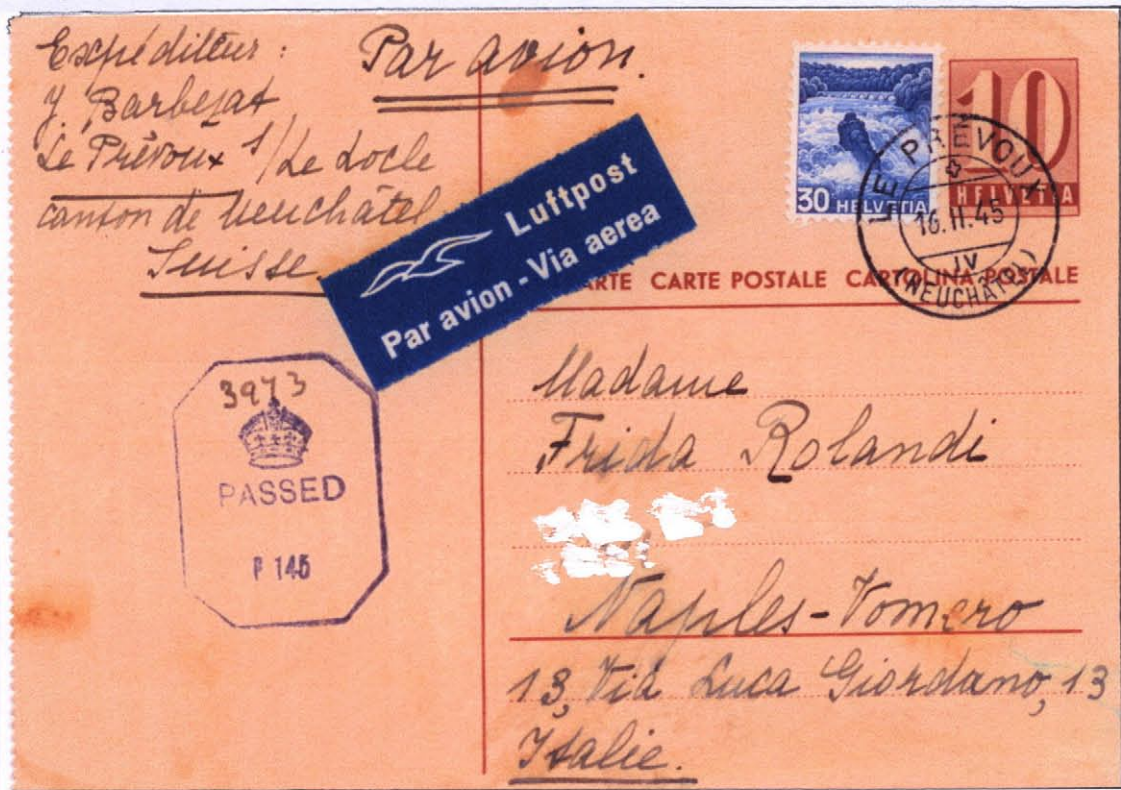 Expéditeur :
Y. Barbezat
Le Prévoux s/Le Locle
canton de Neuchâtel
Suisse.
Par avion.
Luftpost
Par avion - Via aerea
30 HELVETIA
10
HELVETIA
LE PRÉVOUX
16.II.45
IV
(NEUCHÂTEL)
ARTE CARTE POSTALE CARTOLINA POSTALE
3973
PASSED
P 145
Madame
Frida Rolandi
Naples-Vomero
13, Via Luca Giordano, 13
Italie.